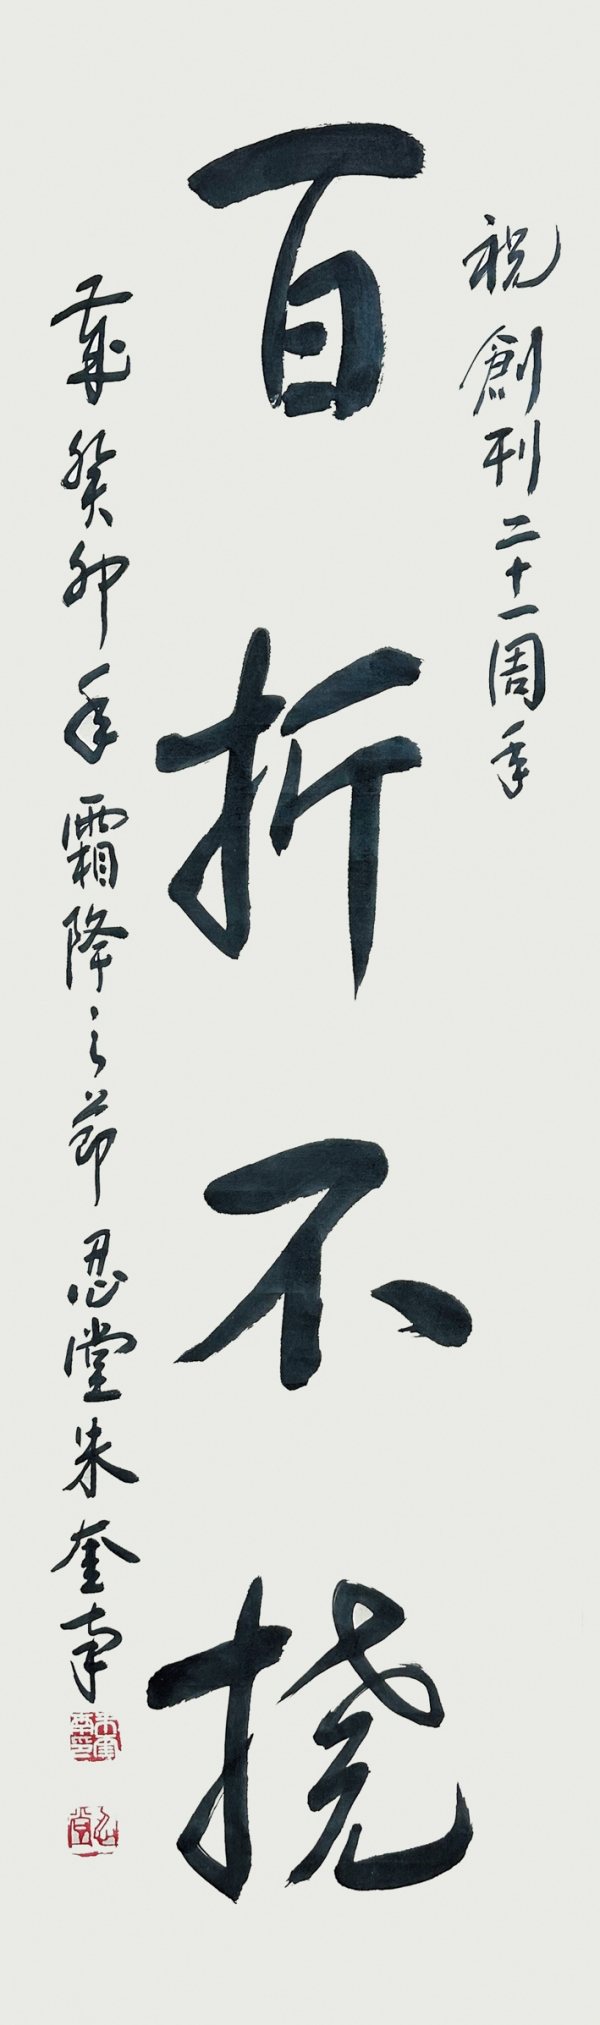 祝創刊二十一周年
百折不撓
歲癸卯年霜降之節忍堂朱奎南